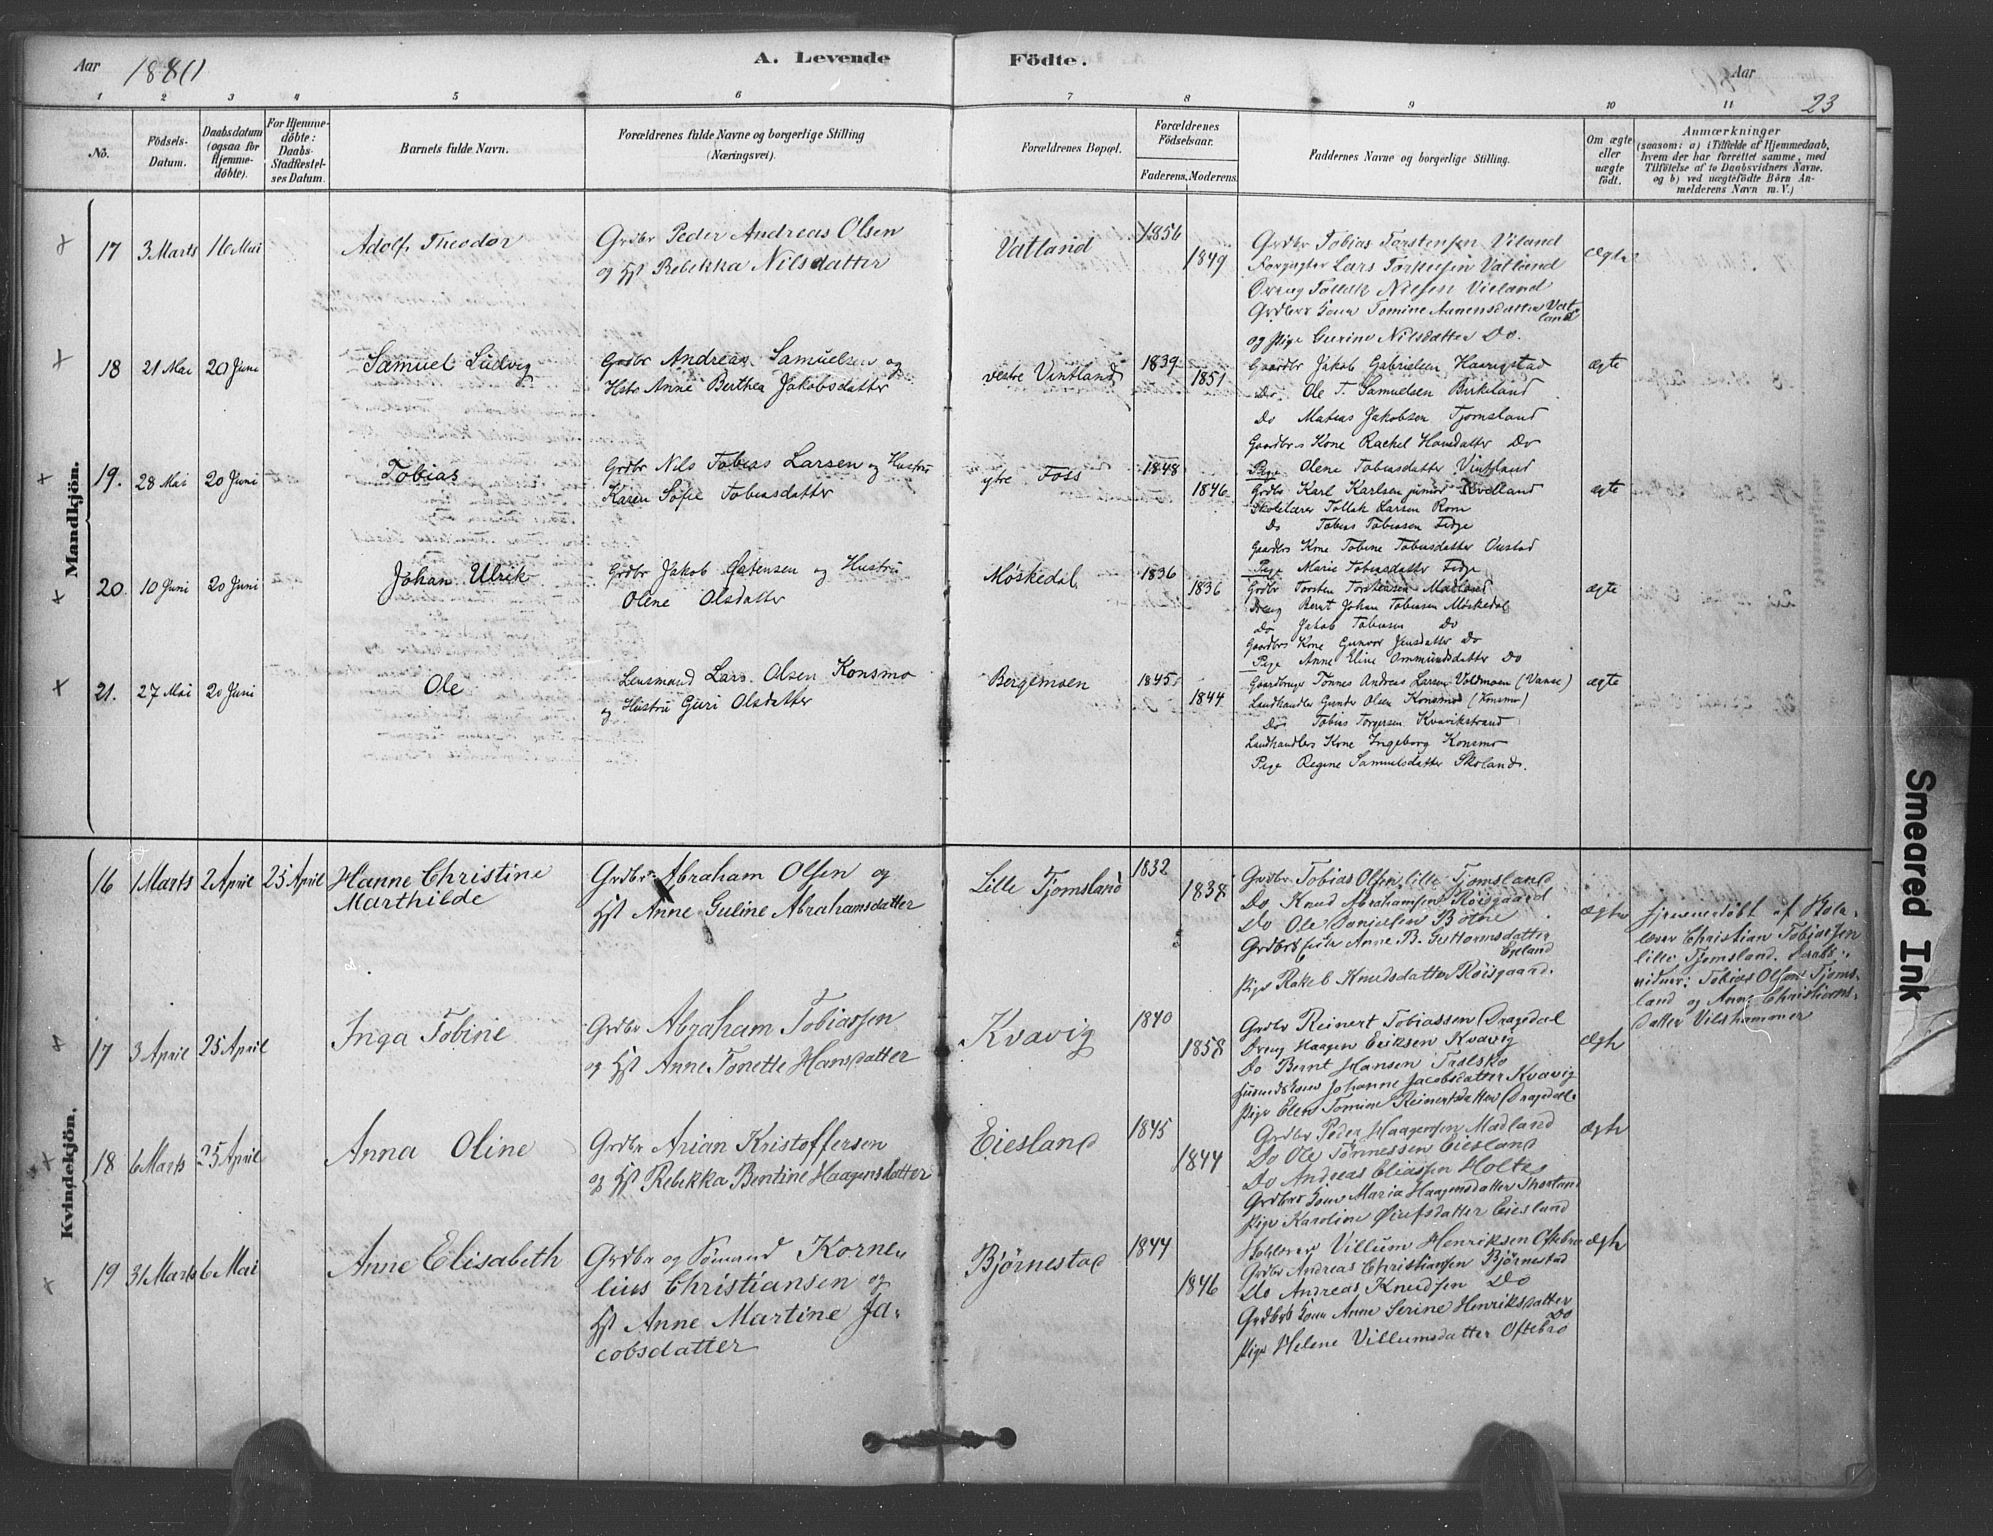 Aar 1880
A. Levende
Födte.
Aar
23
1 2 3 4 5 6 7 8 9 10 11
No.
Födsels-Datum.
Daabsdatum (ogsaa for Hjemme-döbte).
For Hjemme-döbte: Daabs-Stadfæstel-ses Datum.
Barnets fulde Navn.
Forældrenes fulde Navne og borgerlige Stilling (Næringsvei).
Forældrenes Bopæl.
Forældrenes Födselsaar.
Faderens. Moderens.
Faddernes Navne og borgerlige Stilling.
Om ægte eller uægte födt.
Anmærkninger
(saasom: a) i Tilfælde af Hjemmedaab,
hvem der har forrettet samme, med
Tilföielse af to Daabsvidners Navne,
og b) ved uægtefödte Börn An-
melderens Navn m. V.)
Mandkjön.
17 3 Marts 16 Mai
Adolf Theodor
Grdbr Peder Andreas Olsen
og Hst Rebekka Nilsdatter
Vatland
1856
1849
Grdbr Tobias Torstensen Viland
Forpagter Lars Torkelsen Vatland
Dreng Tollak Nilsen Vieland
Grdbrs Kone Tomine Aanensdatter Vat-
land
og Pige Gurine Nilsdatter Do.
Ægte
18 21 Mai 20 Juni
Samuel Ludvig
Grdbr Andreas Samuelsen og
Hstr Anne Berthea Jakobsdatter
vestre Vintland
1839
1851
Gaardbr Jakob Gabrielsen Haarigstad
Do. Ole T. Samuelsen Birkeland
Do Matias Jakobsen Tjomsland
Gaardbrs Kone Rachel Hansdatter Do
Pige Olene Tobiasdatter Vintland
ægte
19. 28 Mai 20 Juni
Tobias
Grdbr Nils Tobias Larsen og Hustru
Karen Sofie Tobiasdatter
ytre Foss
1848
1846
Grdbr Karl Karlsen junior Kvelland
Skolelærer Tollak Larsen Rom
Do Tobias Tobiasen Fidje
Gaardbrs Kone Tobine Tobiasdatter Austad
Pige Marie Tobiasdatter Fidje
ægte
20. 10 Juni 20 Juni
Johan Ulrik
Grdbr Jakob Østensen og Hustru
Olene Olsdatter
Møskedal
1836
1836
Grdbr Torsten Torstensen Madland
Dreng Bernt Johan Tobiasen Møskedal
Do Jakob Tobiasen Do
Gaardbrs Kone Gunvor Jensdatter Do
Pige Anne Eline Ommundsdatter Do
ægte
21. 27 Mai 20 Juni
Ole
Lensmand Lars Olsen Konsmo
og Hustru Guri Olsdatter
Bergemoen
1845
1844
Gaardbruger Tønnes Andreas Larsen Voldmoen (Vanse)
Landhandler Gunder Olsen Konsmo (Konsmo)
Do Tobias Torgersen Kvavikstrand
Landhandlers Kone Ingeborg Konsmo
Pige Regine Samuelsdatter Skoland.
ægte
Kvindekjön.
16 1 Marts 2 April 25 April
Hanne Christine
Marthilde
Grdbr Abraham Olsen og
Hst Anne Guline Abrahamsdatter
Lille Tjomsland
1832
1838
Grdbr Tobias Olsen lille Tjomsland
Do Knud Abrahamsen Röisgaard
Do Ole Danielsen Bötne
Grdbrs Anne B. Guttormsdatter
Eieland
Pige Rakel Knudsdatter Röisgaard.
Ægte
Hjemmedøbt af Skole-
lærer Christian Tobiassen
lille Tjomsland. Daabs-
vidner: Tobias Olsen Tjoms-
land og Anne Christians-
datter Vilshammer
17 3 April 25 April
Inga Tobine
Grdbr Abraham Tobiassen
og Hst Anne Tonette Hansdatter
Kvavig
1840
1858
Grdbr Reinert Tobiassen Dragedal
Dreng Haagen Eriksen Kvavig
Do Bernt Hansen Trelsko
Husmdskone Johanne Jacobsdatter Kvavig
Pige Elen Tomine Reinertsdatter Dragedal
Ægte
18 6 Marts 25 April
Anna Oline
Grdbr Arian Kristoffersen
og Hst Rebekka Bentine Haagensdatter
Eiesland
1845
1844
Grdbr Peder Haagensen Madland
Do Ole Tønnessen Eiesland
Do Andreas Eliassen Holte
Grdbrs Kone Maria Haagensdatter
Pige Karoline Eiesland
Ægte
19 31 Marts 6 Mai
Anne Elisabeth
Grdbr og Sømand Korne-
lius Christiansen og
Hst Anne Martine Ja-
cobsdatter
Bjørnestad
1844
1846
Skolelærer Villum Henriksen Oftebro
Grdbr Andreas Christiansen Bjørnestad
Do Andreas Knudsen Do
Grdbrs Kone Anne Serine Henriksdatter
Do
Pige Helene Villumsdatter Oftebro
Ægte
Smeared Ink